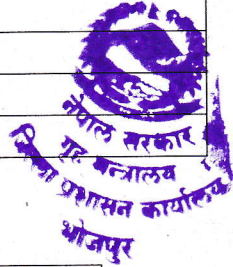 नेपाल सरकार
गृह मन्त्रालय
जिल्ला प्रशासन कार्यालय
भोजपुर